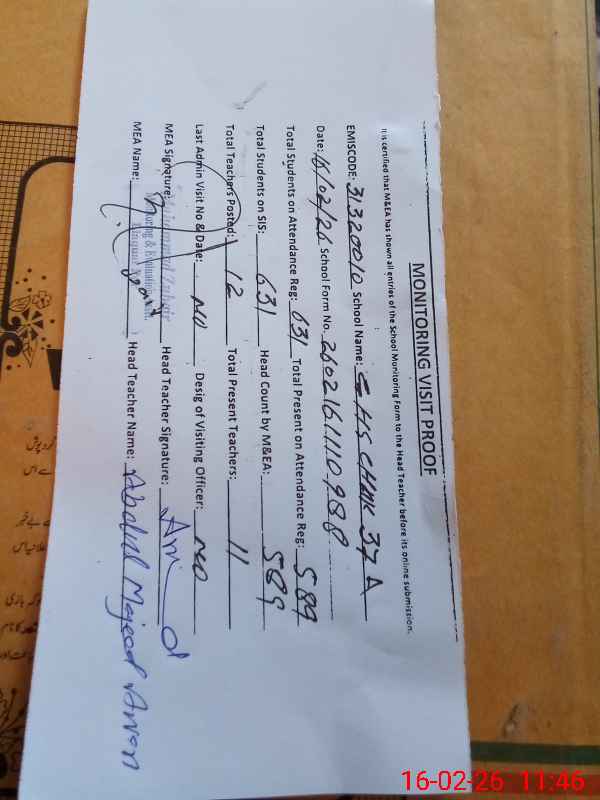 MONITORING VISIT PROOF
It is certified that M&EA has shown all entries of the School Monitoring Form to the Head Teacher before its online submission.
EMISCODE: 31320010 School Name: GHS CHAK 37 A
Date: 16/02/26 School Form No. 2602161110988
Total Students on Attendance Reg: 631 Total Present on Attendance Reg: 589
Total Students on SIS: 631 Head Count by M&EA: 589
Total Teachers Posted: 12 Total Present Teachers: 11
Last Admin Visit No & Date: NO Desig of Visiting Officer: NO
MEA Signature: Head Teacher Signature:
MEA Name: Head Teacher Name: Abdul Majeed Anon
Monitoring & Evaluation
16-02-26 11:46